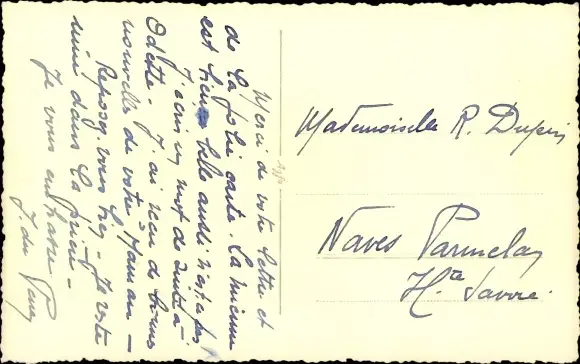 Merci de votre lettre et
de la jolie carte. La mienne
est bien belle aussi n'est ce pas
J'écris un mot de suite à
Odette. J'ai reçu de bonnes
nouvelles de votre Maman —
Reposez vous bien — Je reste
unie dans la prière —
Je vous embrasse
J. du
Mademoiselle R. Dupin
Naves Parmelan
Hte Savoie.